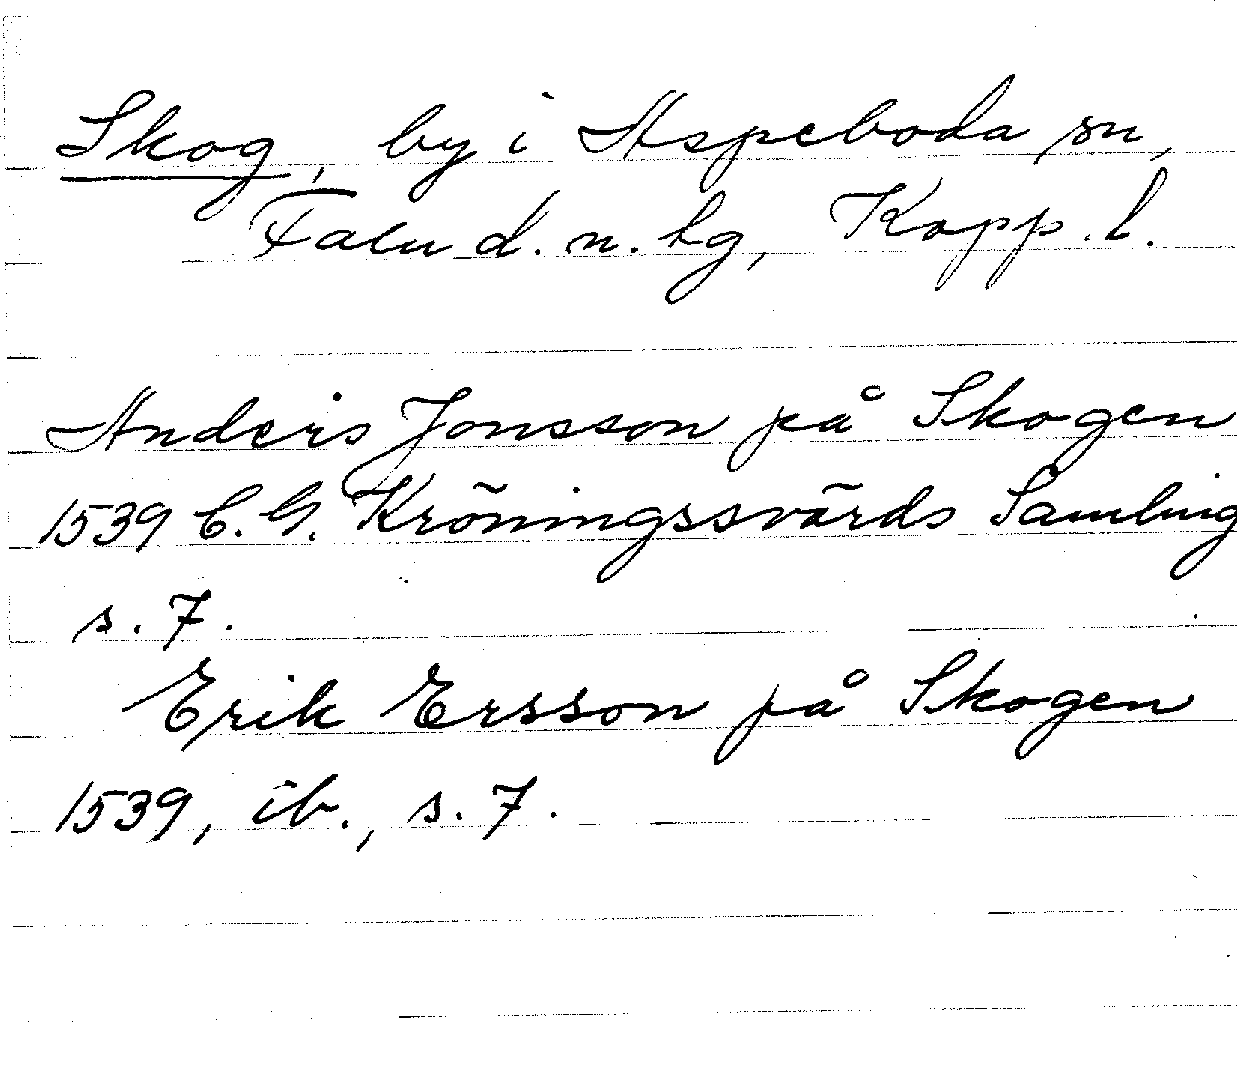 Skog, by i Aspeboda sn,
Falu d. n. hg, Kopp. l.
Anders Jonsson på Skogen
1539 C. G. Kröningssvärds Samling
s. 7.
Erik Ersson på Skogen
1539, ib., s. 7.